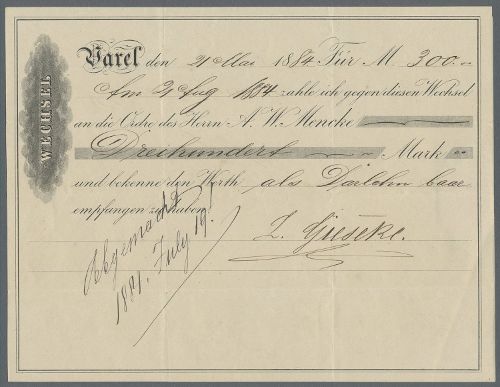 WECHSEL
Varel den 21 Mai 1884 Für M. 300.
Am 21 Aug 1884 zahle ich gegen diesen Wechsel
an die Ordre des Herrn A. W. Mencke
Dreihundert Mark
und bekenne den Werth als Darlehn baar
empfangen zu haben.
L. Gieseke.
Abgemacht
1891. July 19.